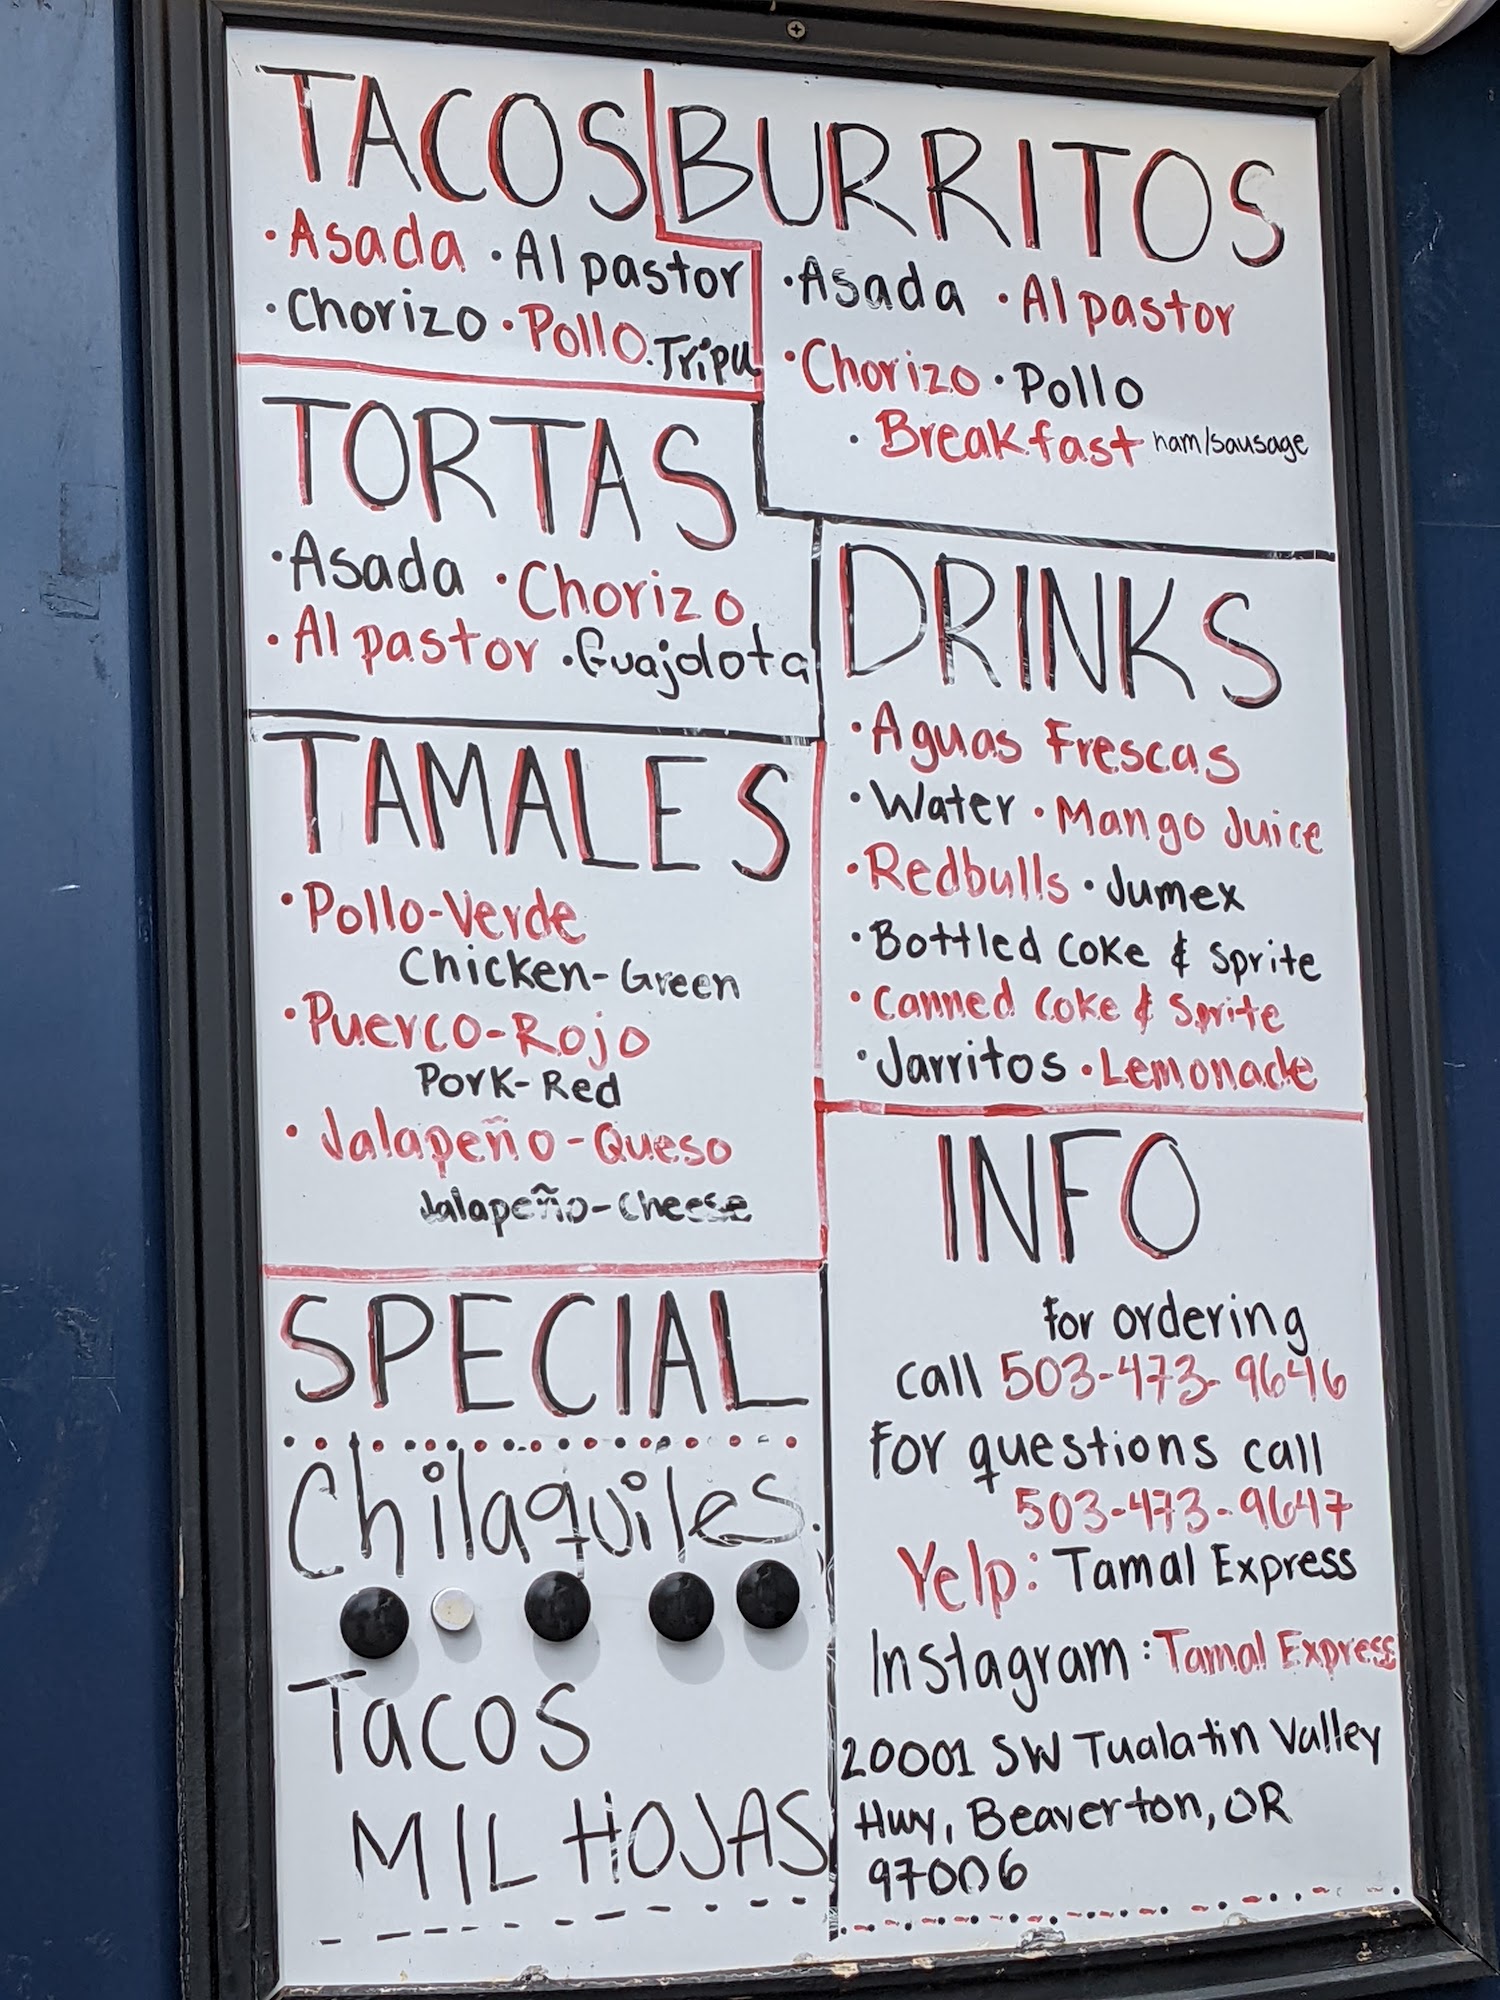 TACOS
• Asada • Al pastor
• Chorizo • Pollo • Tripa
BURRITOS
• Asada • Al pastor
• Chorizo • Pollo
• Breakfast ham/sausage
TORTAS
• Asada • Chorizo
• Al pastor • Guajolota
DRINKS
• Aguas Frescas
• Water • Mango Juice
• Redbulls • Jumex
• Bottled Coke & Sprite
• Canned Coke & Sprite
• Jarritos • Lemonade
TAMALES
• Pollo-Verde
Chicken-Green
• Puerco-Rojo
Pork-Red
• Jalapeño-Queso
Jalapeño-Cheese
SPECIAL
Chilaquiles
Tacos
MIL HOJAS
INFO
for ordering
call 503-473-9646
For questions call
503-473-9647
Yelp: Tamal Express
Instagram: Tamal Express
20001 SW Tualatin Valley
Hwy, Beaverton, OR
97006